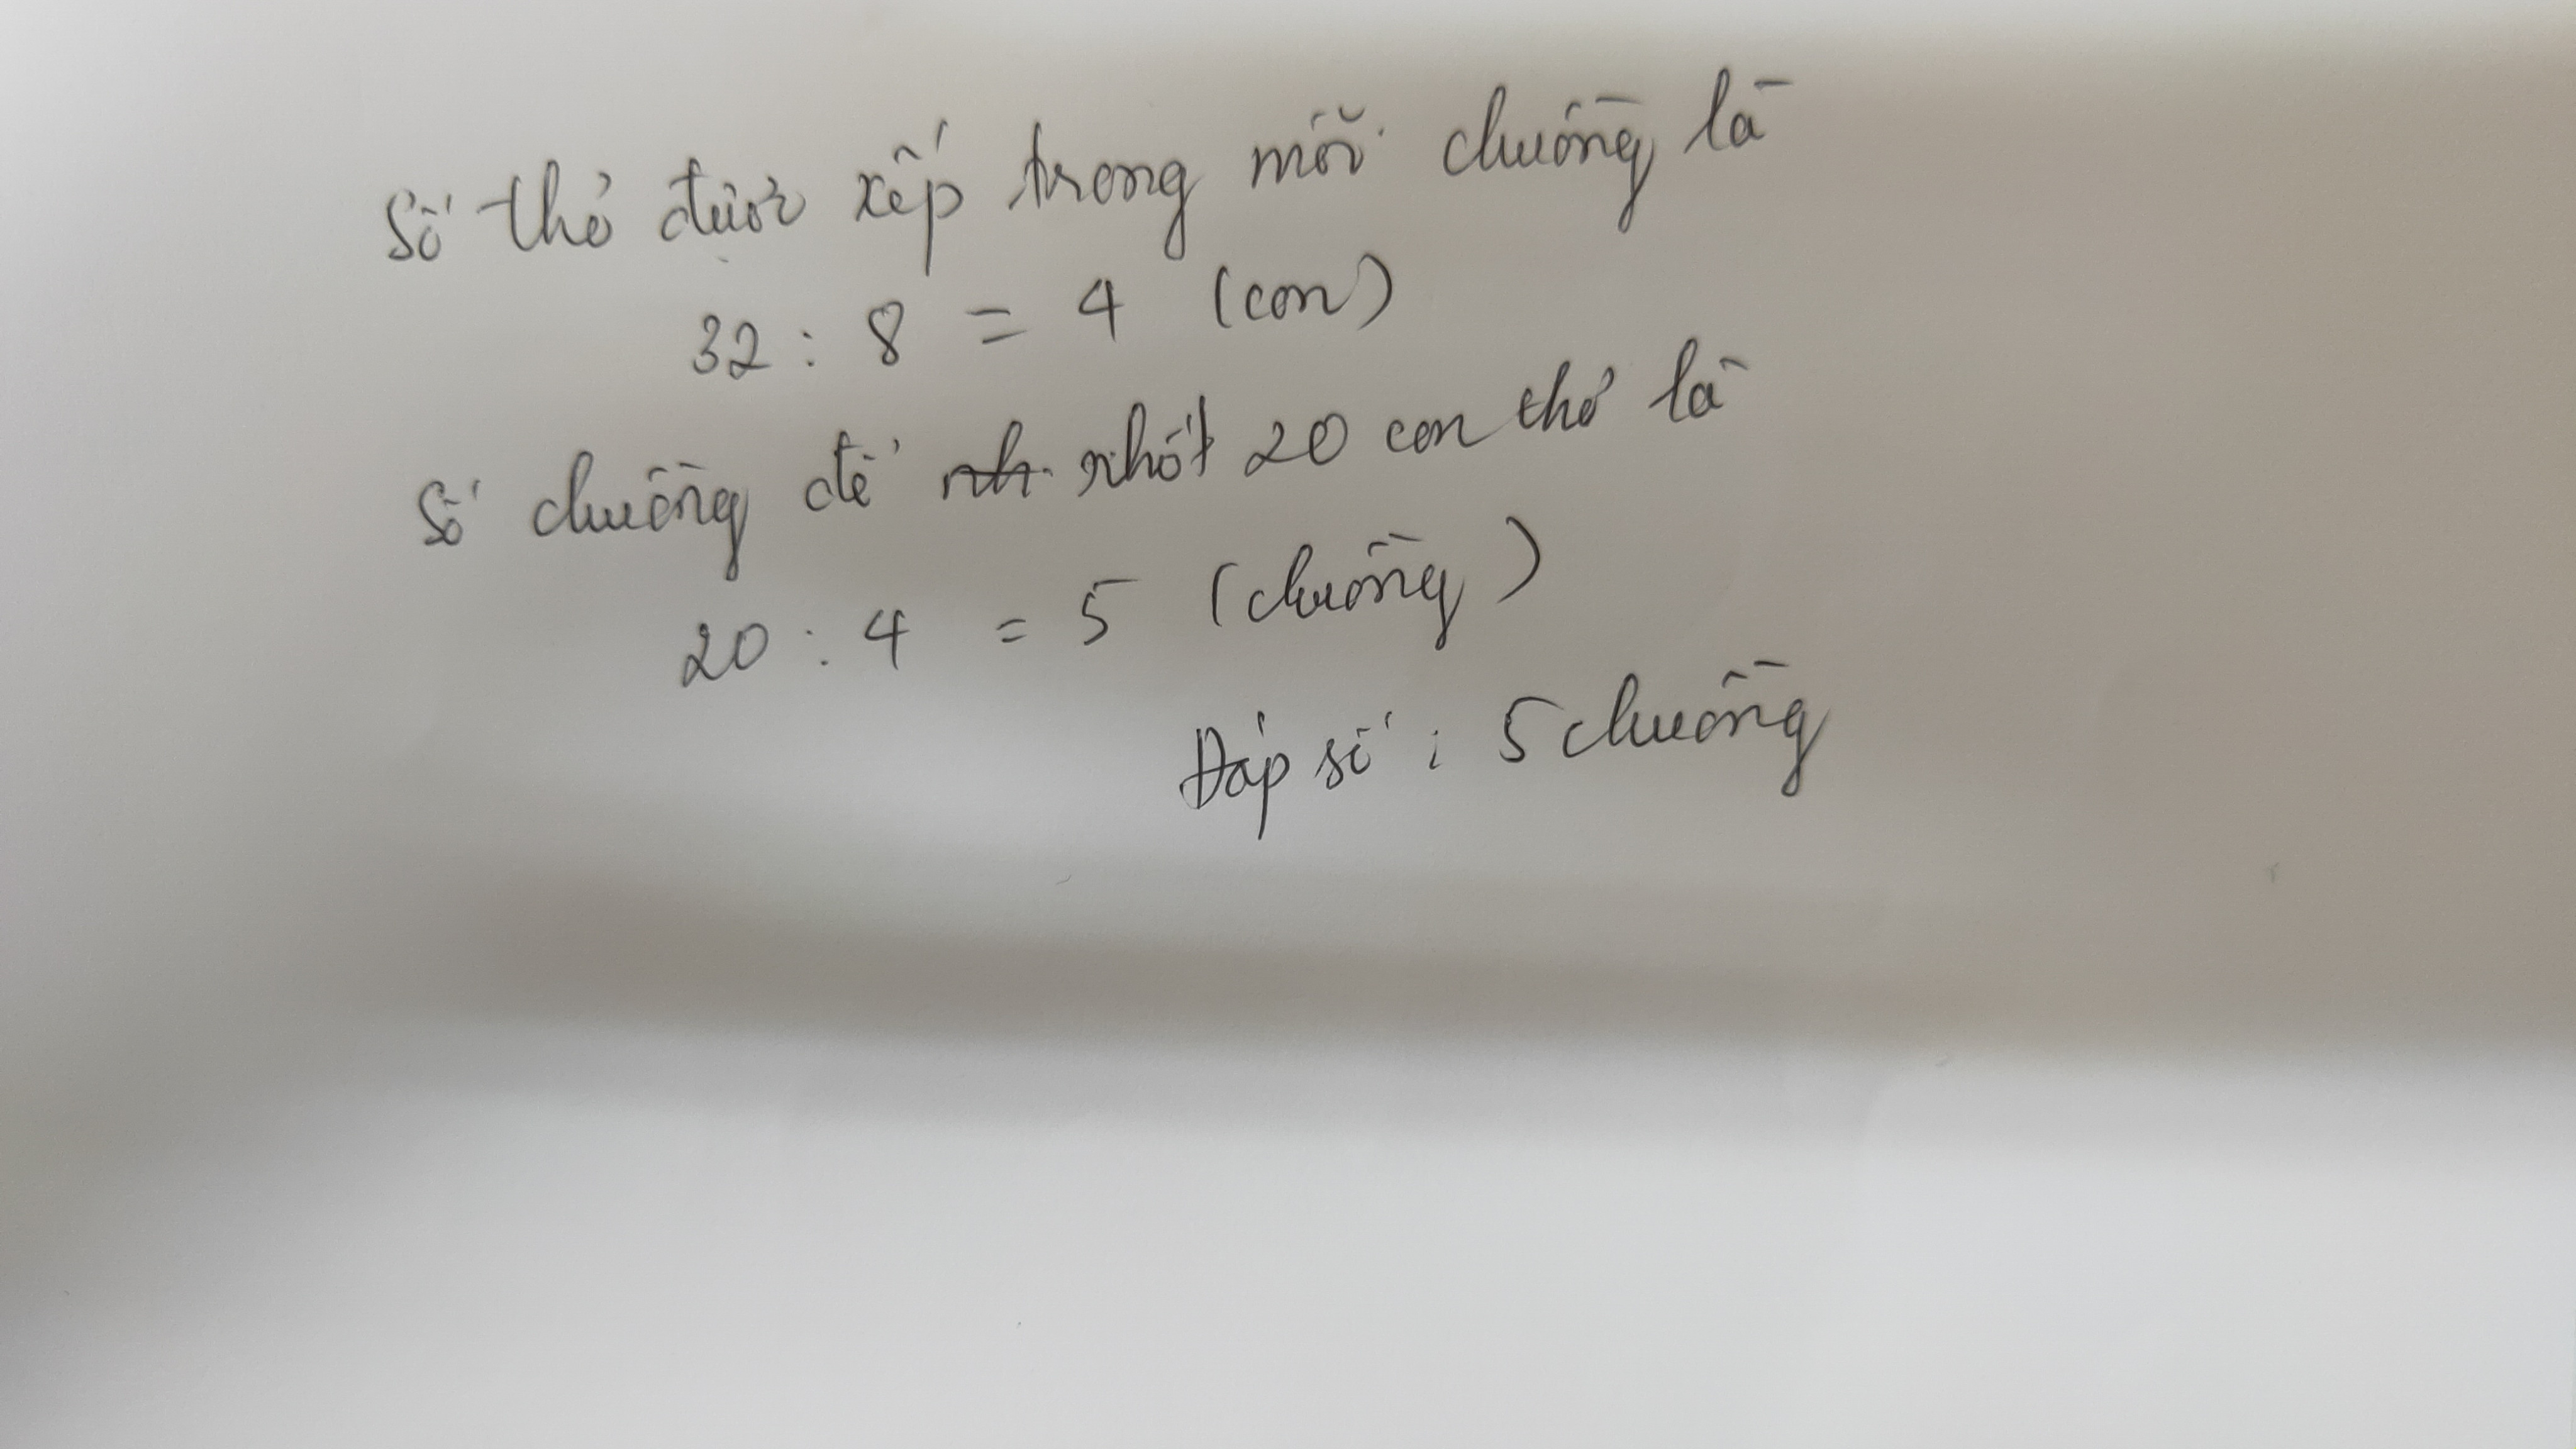 Số thỏ được xếp trong mỗi chuồng là
32 : 8 = 4 (con)
Số chuồng để nhốt 20 con thỏ là
20 : 4 = 5 (chuồng)
Đáp số : 5 chuồng